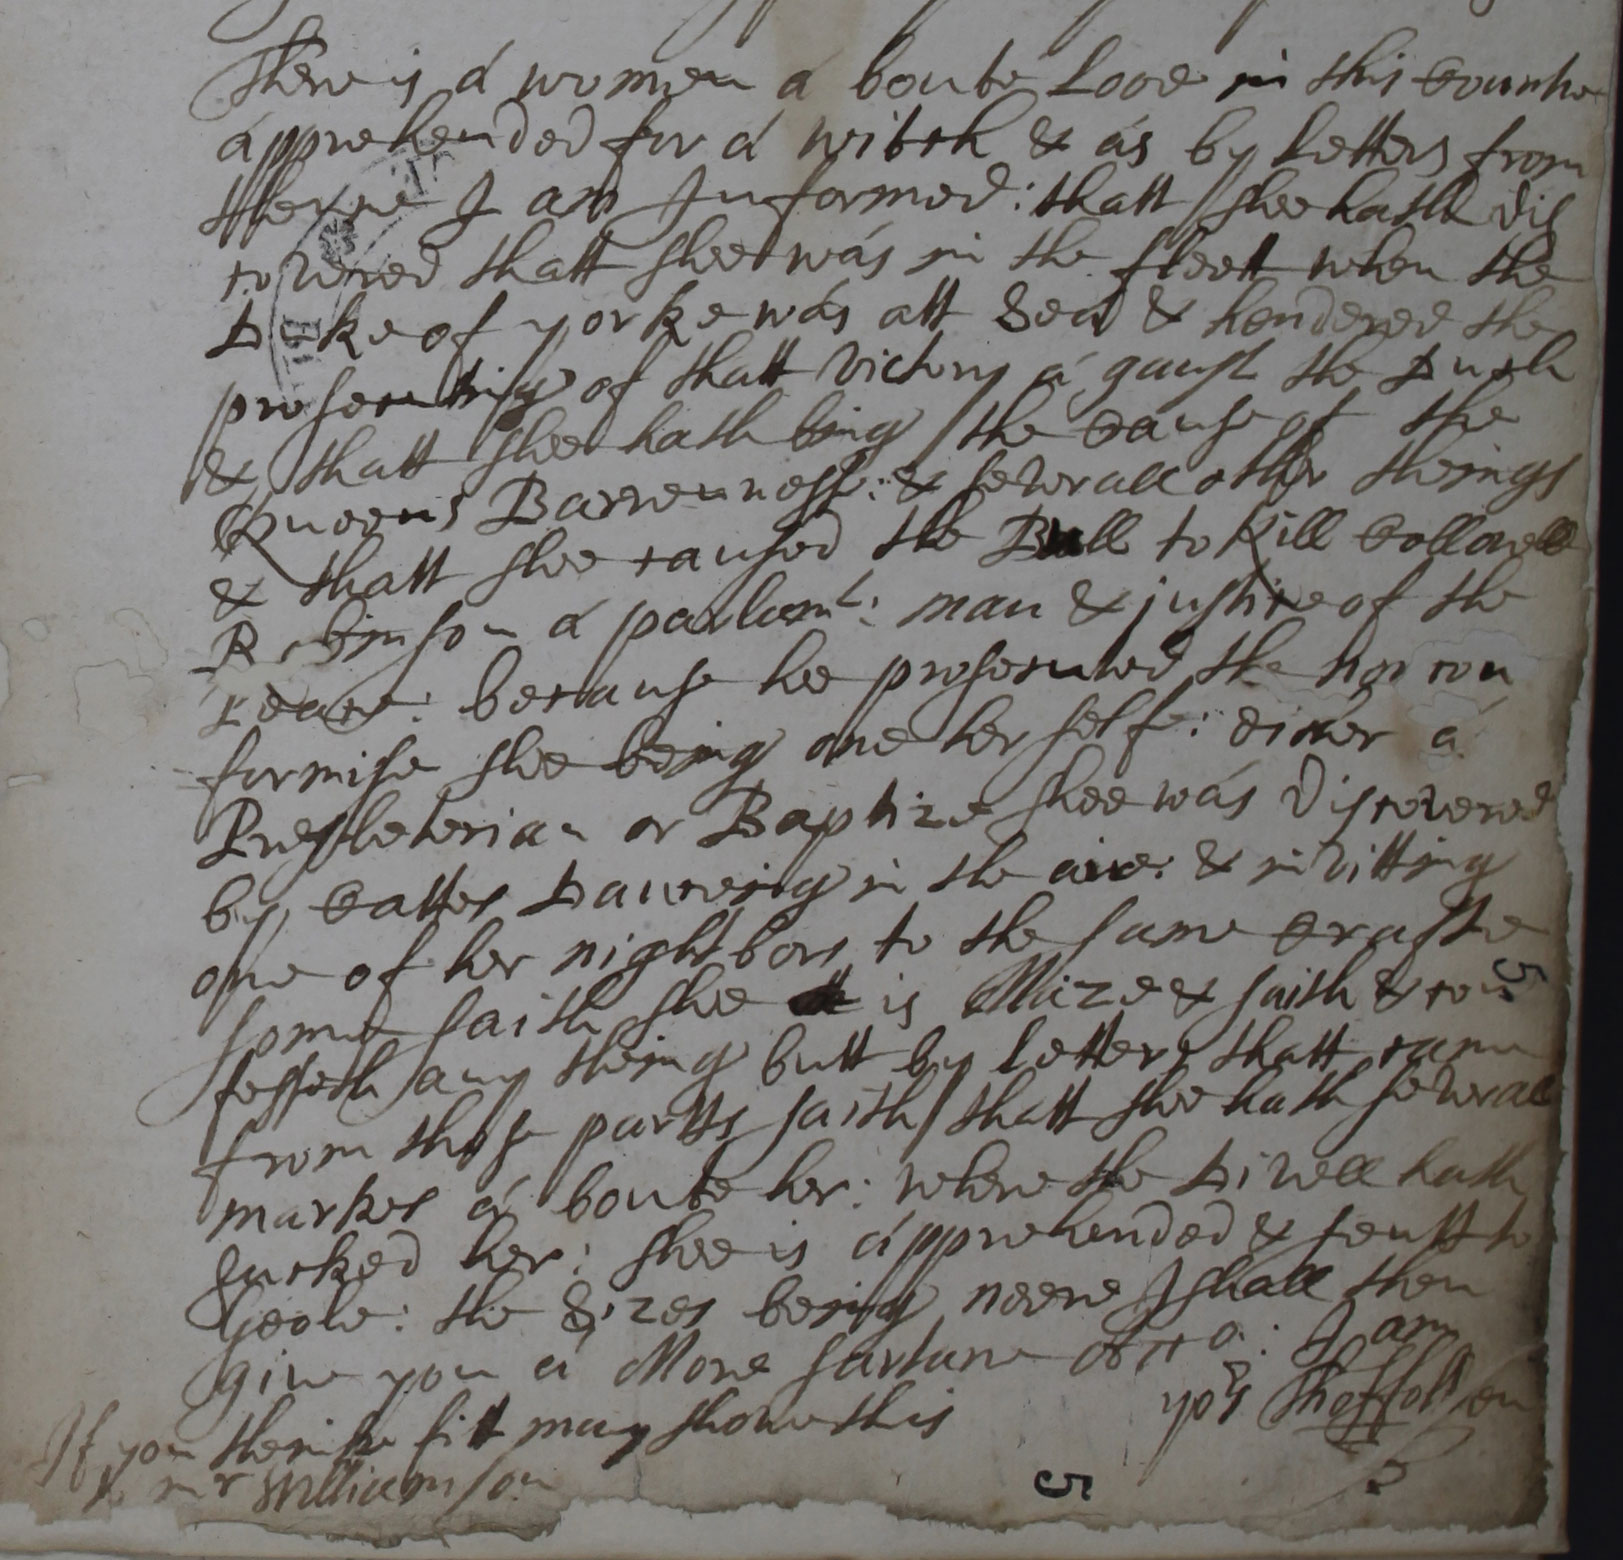 There is a women a boute Looe in this Countie
apprehended for a witch & as by Letters from
thence I am Informed: thatt shee hath dis
covered thatt shee was in the fleett when the
Duke of yorke was att Sea & hendered the
prosecuting of thatt Victory a gainst the Duch
& thatt shee hath bing the Cause of the
Queens Barrennesse: & severall other theings
& thatt shee caused the Bull to kill Collonell
Robinson a parlamt: man & justice of the
peace: because hee prosecuted the non con
formise shee being one her self: either a
Presbeterian or Baptize shee was discovered
by Cattes Danceing in the aire: & inVitting
one of her nightbors to the same Crafte
some saith shee is Mize & saith & con
fesseth any theing butt by letters thatt came
from those partts saith thatt shee hath several
markes a boute her: where the Divell hath
sucked her: shee is apprehended & sentt to
Geole: the Sizes being neere I shall then
give you a More sartane acco: I am
yors
If you theinke fitt may shone this
to mr Williamson
5
5